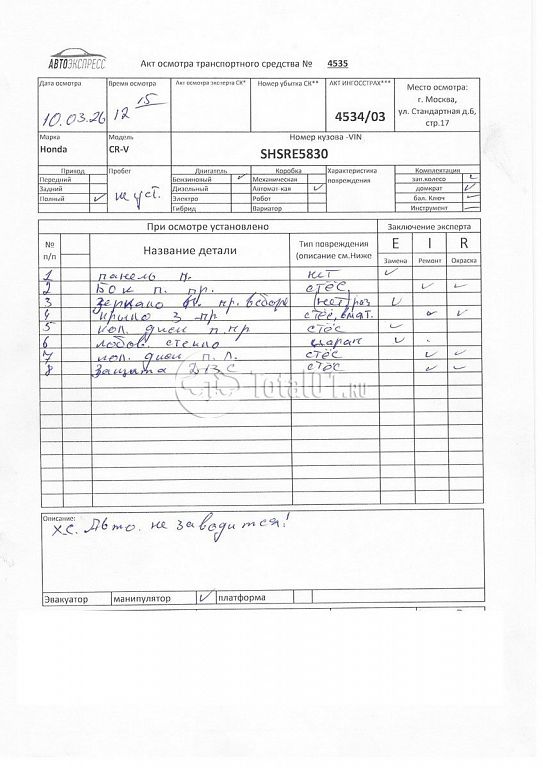 АВТОЭКСПРЕСС
Акт осмотра транспортного средства № 4535
Дата осмотра Время осмотра Акт осмотра эксперта СК* Номер убытка СК** АКТ ИНГОССТРАХ*** Место осмотра:
10.03.26 12 15 4534/03 г. Москва,
ул. Стандартная д.6,
стр.17
Марка Модель Номер кузова -VIN
Honda CR-V SHSRE5830
Привод Пробег Двигатель Коробка Характеристика повреждения Комплектация
Передний Бензиновый ✓ Механическая зап.колесо ✓
Задний Дизельный Автомат-кая ✓ домкрат ✓
Полный ✓ не уст. Электро Робот бал. Ключ ✓
Гибрид Вариатор Инструмент —
При осмотре установлено Заключение эксперта
№ п/п Название детали Тип повреждения (описание см.Ниже E I R
Замена Ремонт Окраска
1 панель п. нет ✓
2 Бок п. пр. стёс ✓ ✓
3 Зеркало пр. в сборе ✓
4 крыло З пр ✓ ✓
5 кол. диск п. пр стёс ✓
6 лобов. стекло царап ✓
7 кол. диск п. л. стёс ✓ ✓
8 Защита ДВС стёс ✓ ✓
Total01.RU
Описание:
х.с. Авто. не заводится!
Эвакуатор манипулятор ✓ платформа